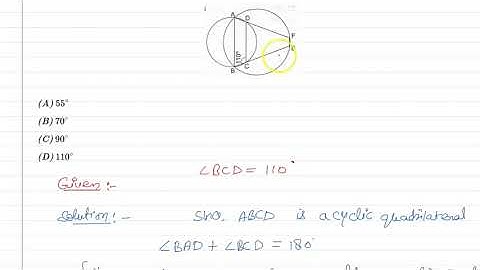 A
D
P
E
B
C
(A) 55°
(B) 70°
(C) 90°
(D) 110°
∠BCD = 110°
Given :-
Solution! :- Since ABCD is a cyclic quadrilateral
∠BAD + ∠BCD = 180°